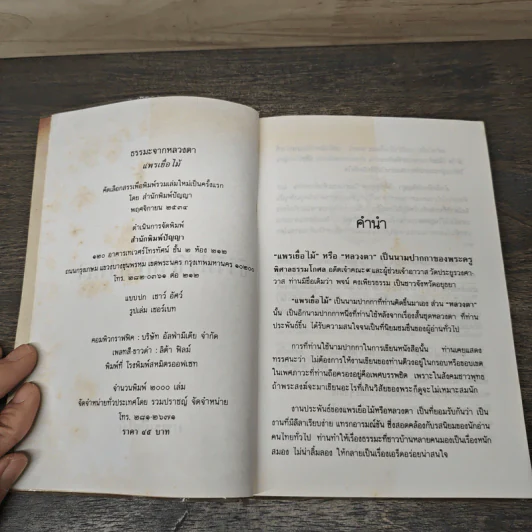 ธรรมะจากหลวงตา
แพรเยื่อไม้
คัดเลือกสรรเพื่อพิมพ์รวมเล่มใหม่เป็นครั้งแรก
โดย สำนักพิมพ์ปัญญา
พฤศจิกายน ๒๕๓๔
ดำเนินการจัดพิมพ์
สำนักพิมพ์ปัญญา
๑๒๐ อาคารเทเวศร์โทรทัศน์ ชั้น ๒ ห้อง ๒๑๒
ถนนกรุงเกษม แขวงบางขุนพรหม เขตพระนคร กรุงเทพมหานคร ๑๐๒๐๐
โทร. ๒๘๒-๐๓๖๑ ต่อ ๒๑๒
แบบปก เชาว์ อัศว์
รูปเล่ม เฮอร์เบท
คอมพิวกราฟฟิค : บริษัท อัลฟ่ามีเดีย จำกัด
เพลทสี-ขาวดำ : ลีด้า ฟิลม์
พิมพ์ที่ โรงพิมพ์สหมิตรออฟเซท
จำนวนพิมพ์ ๒๐๐๐ เล่ม
จัดจำหน่ายทั่วประเทศโดย รวมปราชญ์ จัดจำหน่าย
โทร. ๒๘๑-๒๖๓๑
ราคา ๔๕ บาท
คำนำ
"แพรเยื่อไม้" หรือ "หลวงตา" เป็นนามปากกาของพระครู
พิศาลธรรมโกศล อดีตเจ้าคณะ ๕ และผู้ช่วยเจ้าอาวาส วัดประยูรวงศา
วาส ท่านมีชื่อเดิมว่า พจน์ คงเพียรธรรม เป็นชาวจังหวัดอยุธยา
"แพรเยื่อไม้" เป็นนามปากกาที่ท่านคิดขึ้นมาเอง ส่วน "หลวงตา"
นั้น เป็นอีกนามปากกาหนึ่งที่ท่านใช้หลังจากเรื่องสั้นชุดหลวงตา ที่ท่าน
ประพันธ์ขึ้น ได้รับความสนใจจนเป็นที่นิยมชมชื่นของผู้อ่านทั่วไป
การที่ท่านใช้นามปากกาในการเขียนหนังสือนั้น ท่านเคยแสดง
ทรรศนะว่า ไม่ต้องการให้งานเขียนของท่านตัวงอยู่ในกรอบหรือขอบเขต
ในเพศภาวะที่ท่านถือครองอยู่คือเพศบรรพชิต เพราะในสังคมชาวพุทธ
ถ้าพระสงฆ์จะมาเขียนอะไรที่เกินวิสัยของพระก็ดูจะไม่เหมาะสมนัก
งานประพันธ์ของแพรเยื่อไม้หรือหลวงตา เป็นที่ยอมรับกันว่า เป็น
งานที่มีลีลาเรียบง่าย แทรกอารมณ์ขัน ซึ่งสอดคล้องกับรสนิยมของนักอ่าน
คนไทยทั่วไป ท่านทำให้เรื่องธรรมะที่ชาวบ้านหลายคนมองเป็นเรื่องหนัก
สมอง ไม่น่าลิ้มลอง ให้กลายเป็นเรื่องเอร็ดอร่อยน่าสนใจ